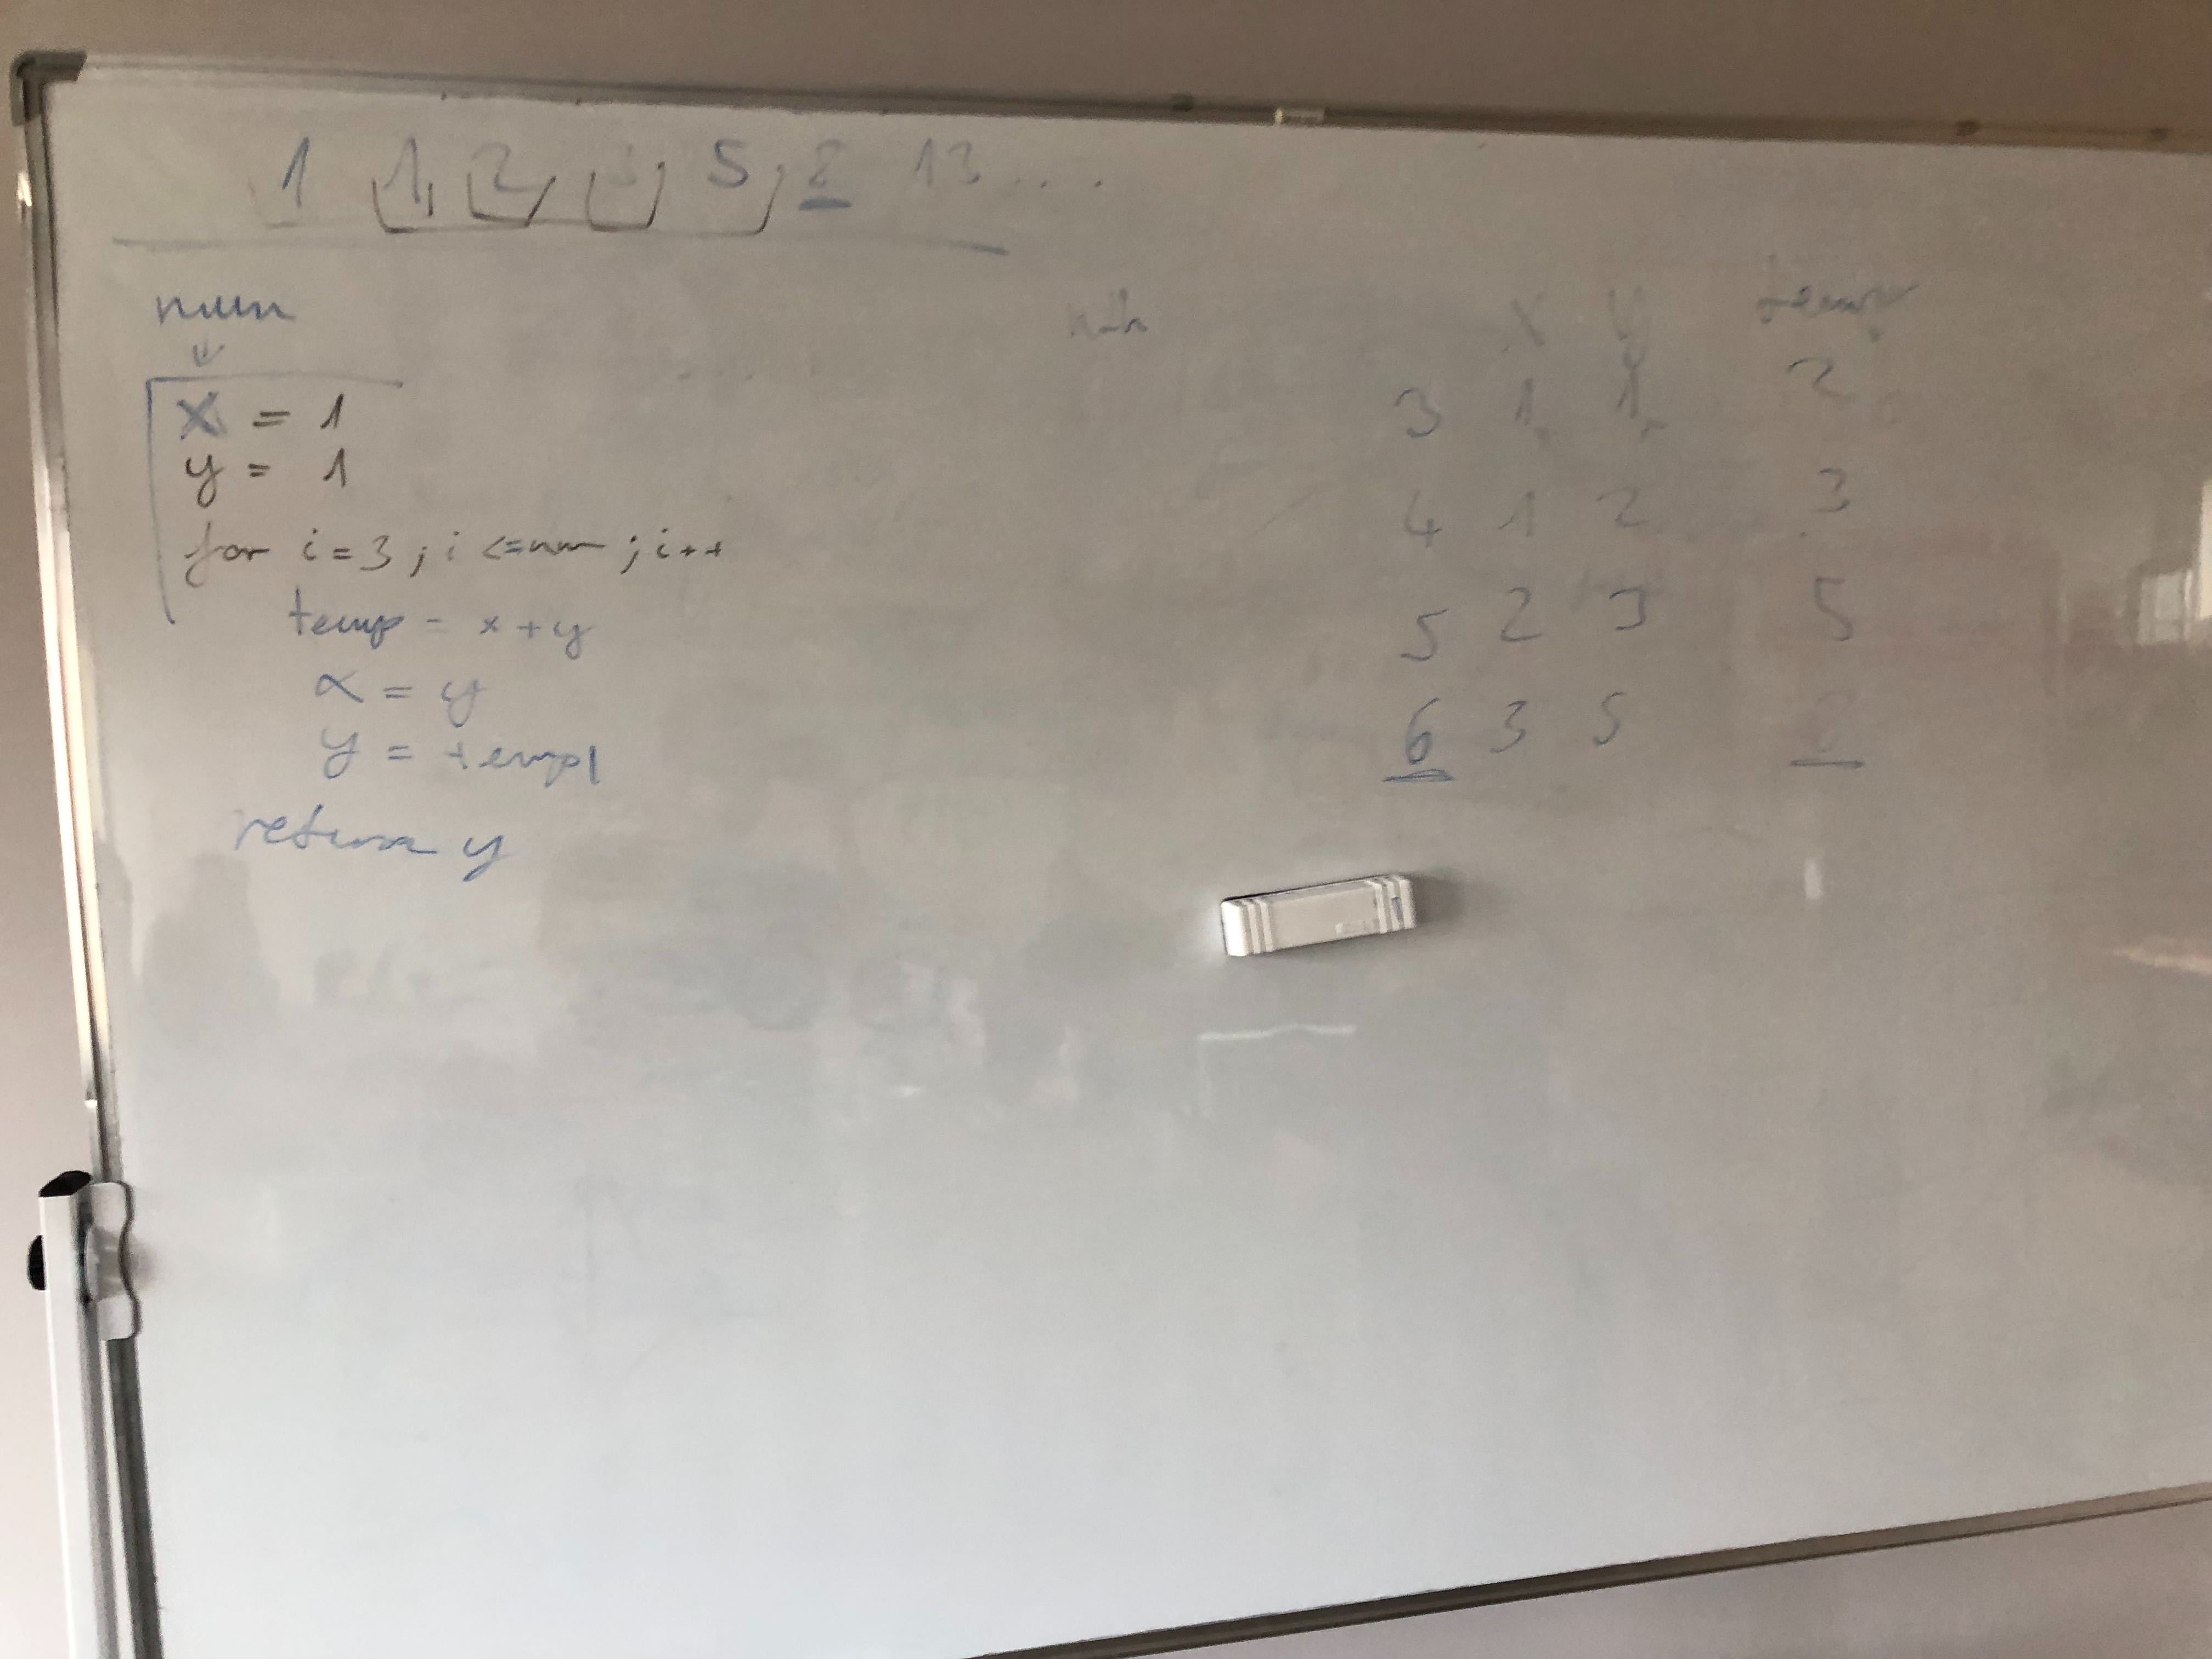 1 1 2 3 5 8 13 ...
num
x = 1
y = 1
for i=3; i <=num; i++
temp = x+y
x = y
y = temp
return y
nth x y temp
3 1 1 2
4 1 2 3
5 2 3 5
6 3 5 8